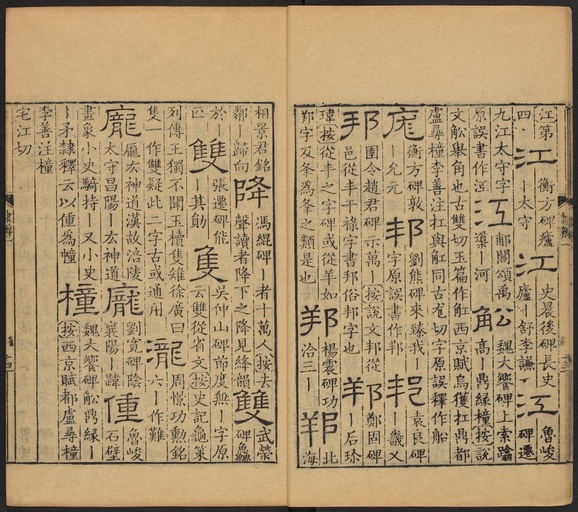 江第四·江衡方碑廬｜太守江史晨後碑長史廬｜舒李謙·江魯峻碑遷
九江太守字原誤書作江江郙閣頌禹鑿｜河舩魏大饗碑上索蹹高｜鼎緣橦按說
文舩舉角也古雙切玉篇作舡西京賦烏獲扛鼎都盧尋橦李善注扛與舡同古尨切字原誤釋作船
庬衡方碑敦｜允元邦劉熊碑來臻我｜字原誤書作邦邦袁良碑｜畿乂
邦圉令趙君碑示萬｜按說文邦從邑從丰干祿字書邦俗邦字也邦鄭固碑｜后珎
瑋按從丰之字碑或從羊如邦字夅為夆之類是也邦楊震碑功洽三｜邦北海
相景君銘鄰｜歸向降馮緄碑｜者十萬人按去聲讀者降下之降見絳韻雙武榮碑感
於｜匹雙張遷碑能｜其勛隻吳仲山碑節度無｜字原云雙從省文按史記龜策
列傳王獨不聞玉櫝隻雉徐廣曰隻一作雙疑此二字古或通用瀧周憬功勳銘六｜作難
龐龐厷神道漢故涪陵太守昌陽｜厷神道龐劉寬碑陰襄陽｜諱僮魯峻石壁
畫象小史騎持｜又小史｜矛隸釋云以僮為幢橦魏大饗碑舩鼎緣｜按西京賦都盧尋橦
李善注橦宅江切